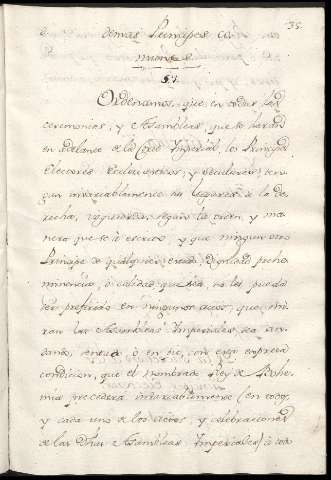 35.
demas Principes co
munes.
§.1.
Ordenamos, que en todas las
ceremonias, y Asambleas, que se haran
en adelante de la Corte Imperial, los Principes
Electores Eclesiasticos, y Seculares, ten
gan invariablemente sus lugares a la de
recha, yzquierda, segun la orden, y ma
nera que se à escrito, y que ningun otro
Principe de qualquier estado, Dignidad prehe
minencia, ò calidad que sea no les pueda
ser preferido en ningunos actos, que mi
ran las Asambleas Imperiales, sea an
dando, sentado, ò en pie, con esta expresa
condicion, que el nombrado Rey de Bohe
mia precederà invariablemente en todos,
y cada uno de los actos, y celebraciones
de las dhas Asambleas Imperiales, à todo